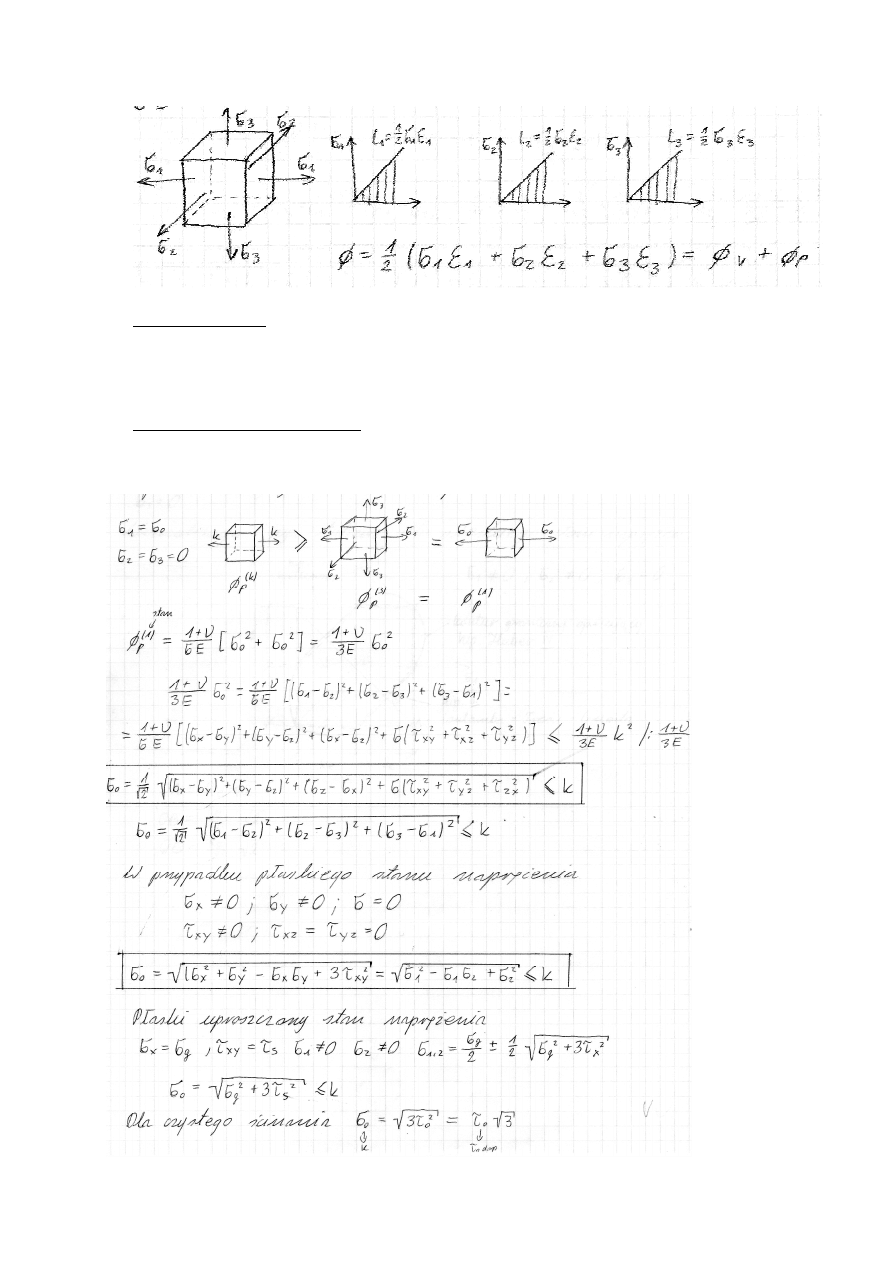 σ₃ σ₂ σ₁ σ₁ σ₂ σ₃
σ₁ L₁=½σ₁ε₁ σ₂ L₂=½σ₂ε₂ σ₃ L₃=½σ₃ε₃
ϕ = ½ (σ₁ε₁ + σ₂ε₂ + σ₃ε₃) = ϕᵥ + ϕₚ
σ₁ = σ₀
σ₂ = σ₃ = 0
k k ⩾ σ₃ σ₂ σ₁ σ₁ σ₂ σ₃ = σ₀ σ₀
ϕₚ⁽ᵏ⁾ ϕₚ⁽³⁾ = ϕₚ⁽¹⁾
stan
ϕₚ⁽¹⁾ = (1+ν)/(6E) [σ₀² + σ₀²] = (1+ν)/(3E) σ₀²
(1+ν)/(3E) σ₀² = (1+ν)/(6E) [(σ₁-σ₂)²+(σ₂-σ₃)²+(σ₃-σ₁)²] =
= (1+ν)/(6E) [(σx-σy)²+(σy-σz)²+(σx-σz)²+6(τxy²+τxz²+τyz²)] ⩽ (1+ν)/(3E) k² /: (1+ν)/(3E)
σ₀ = 1/√2 √((σx-σy)²+(σy-σz)²+(σz-σx)²+6(τxy²+τyz²+τzx²)) ⩽ k
σ₀ = 1/√2 √((σ₁-σ₂)²+(σ₂-σ₃)²+(σ₃-σ₁)²) ⩽ k
W przypadku płaskiego stanu naprężenia
σx ≠ 0 ; σy ≠ 0 ; σ = 0
τxy ≠ 0 ; τxz = τyz = 0
σ₀ = √(σx² + σy² - σxσy + 3τxy²) = √(σ₁² - σ₁σ₂ + σ₂²) ⩽ k
Płaski uproszczony stan naprężenia
σx = σg , τxy = τs σ₁ ≠ 0 σ₂ ≠ 0 σ₁,₂ = σg/2 ± ½ √(σg² + 3τx²)
σ₀ = √(σg² + 3τs²) ⩽ k
Dla czystego ścinania σ₀ = √(3τ₀²) = τ₀ √3
k